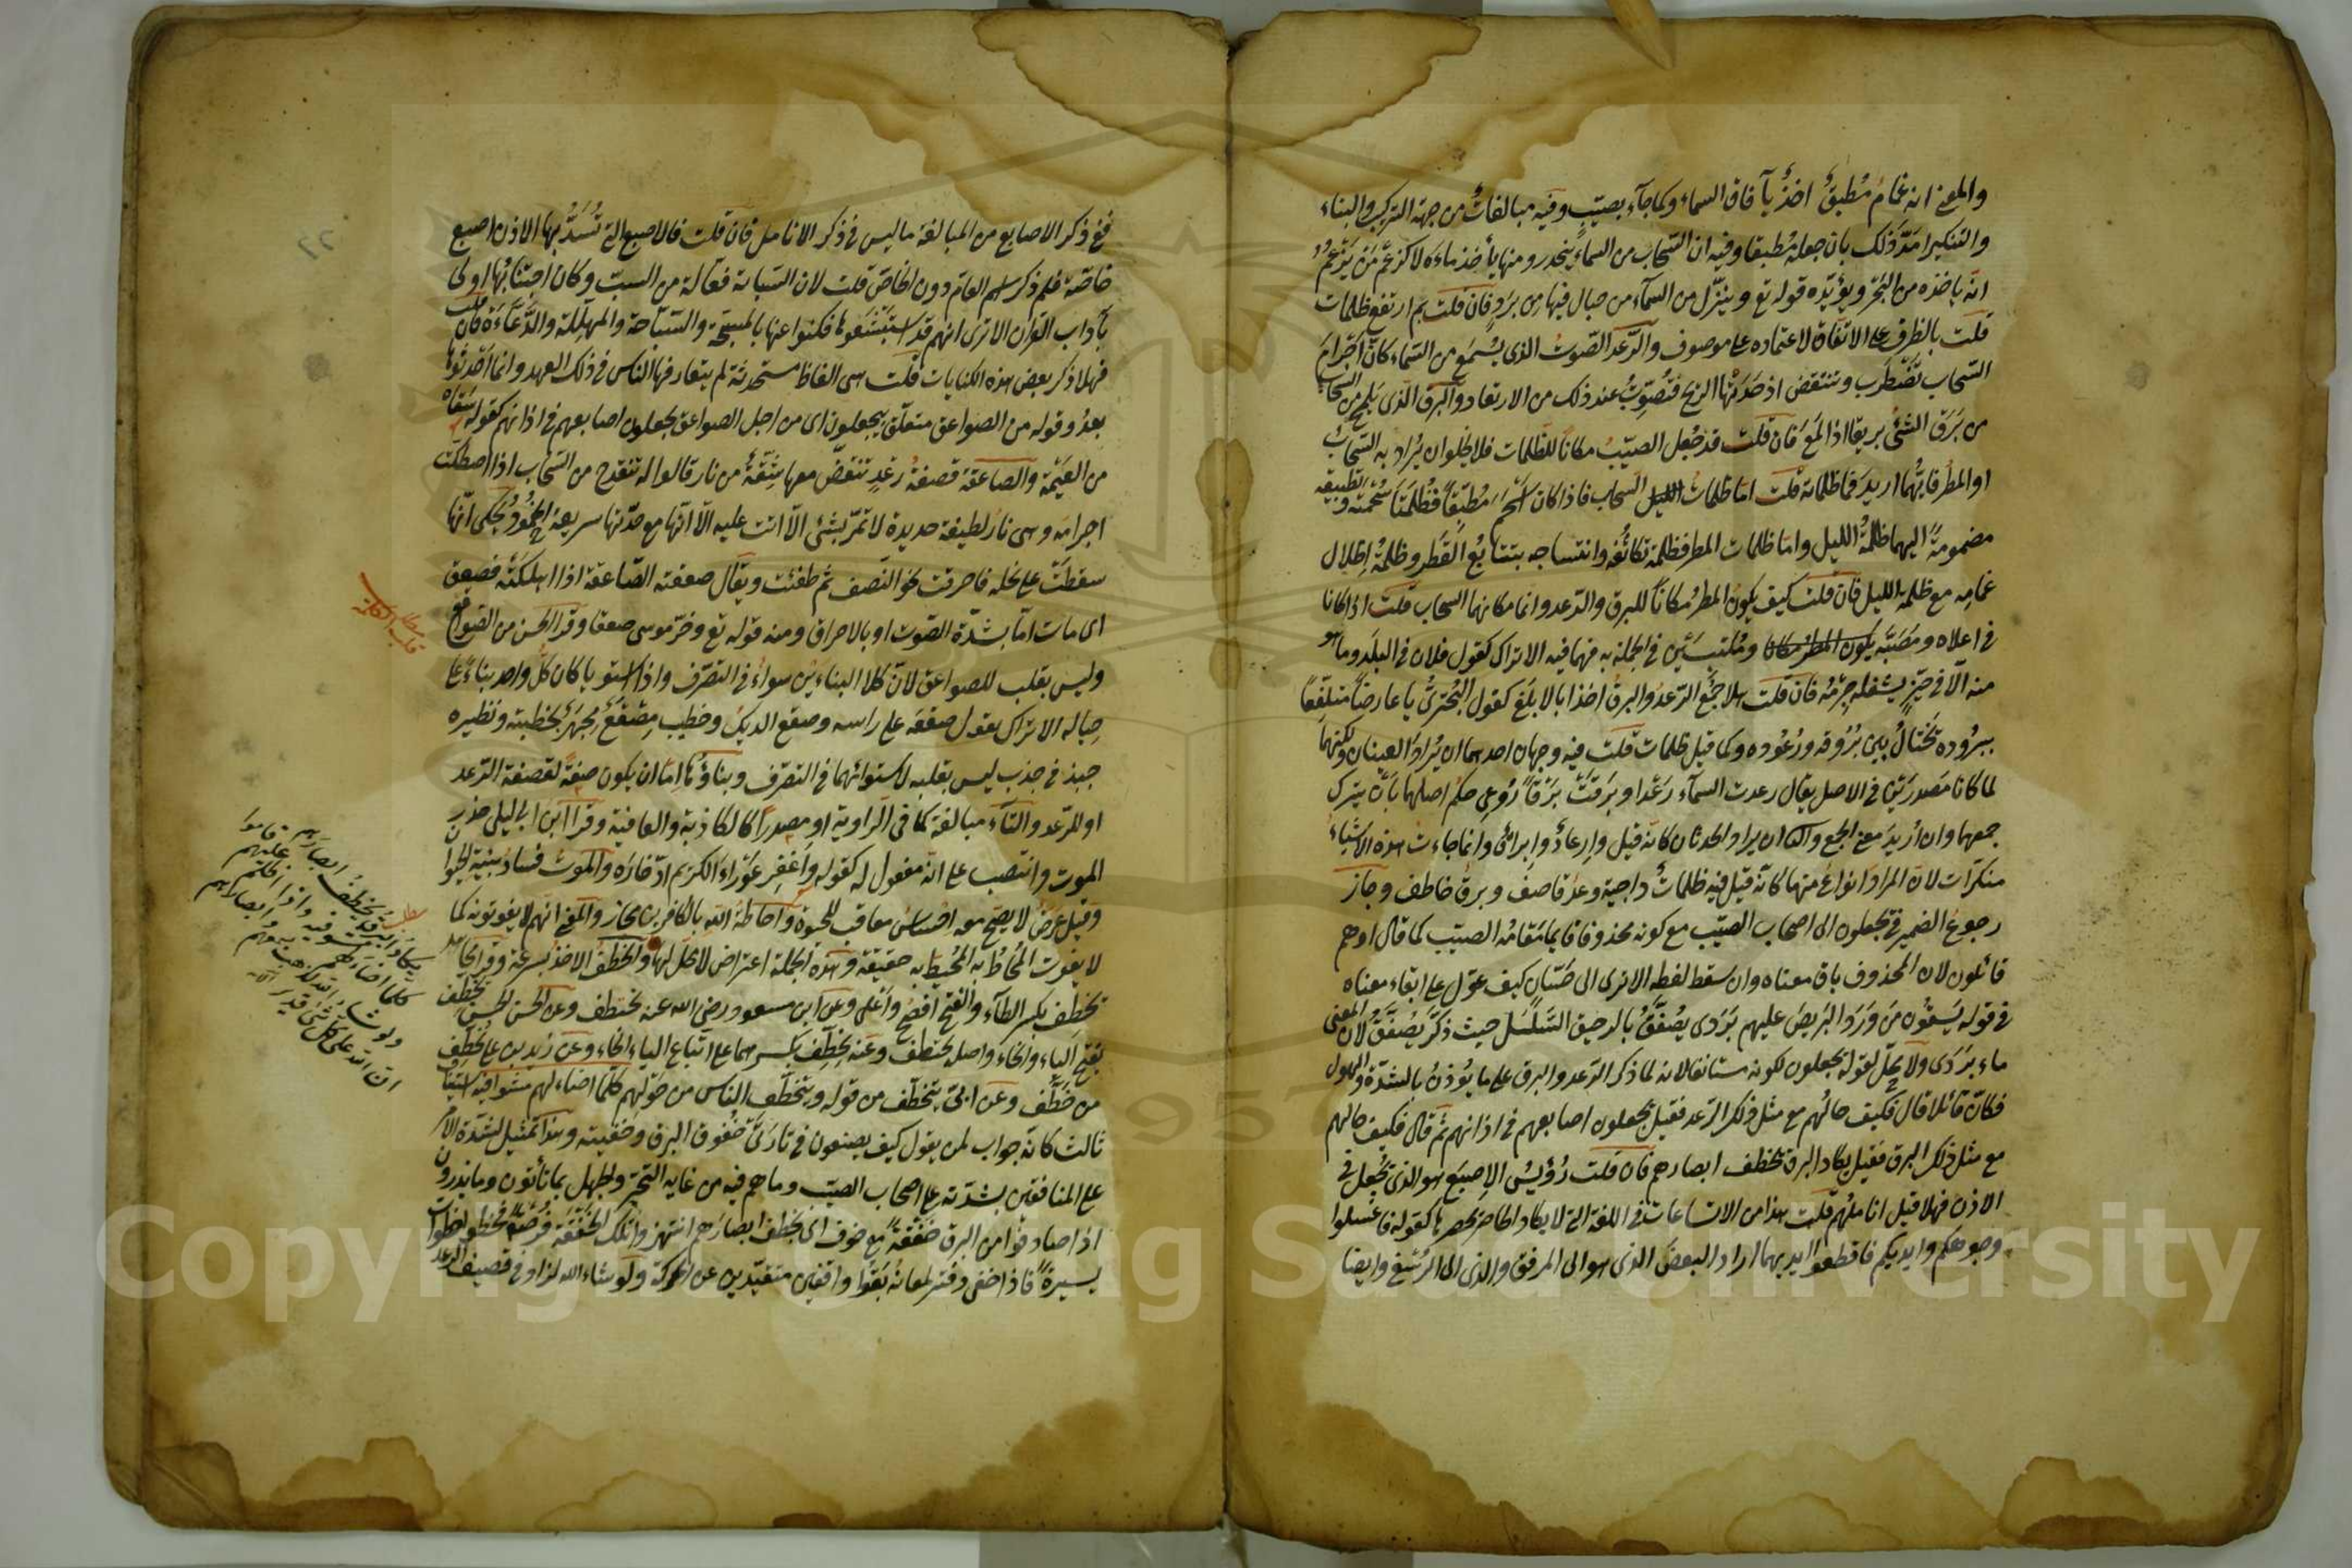 والمعنى انه غمام مُطبقٌ اخذٌ بآفاق السماء وكما جآء بصيّبٍ وفيه مبالغاتٌ من جهة التركيب والبناء
والتنكير امَدَّ ذلك بان جعله مُطبقا وفيه ان السّحاب من السماء ينحدر ومنها يأخذ ماءَه لا كزعم من يزعمُ
انّه ياخذه من البحر ويؤيّده قوله تع وينزّل من السمآء من جبال فيها من بردٍ فان قلت بم ارتفع ظلمات
قلت بالظرف على الاتفاق لاعتماده على موصوف والرّعد الصّوتُ الذى يسمع من السّماء كانّ اجرامَ
السّحاب تضطرب وتنتقض اذ حَدَتْها الريح فتُصوِتُ عند ذلك من الارتعاد والبرق الّذى يلمع من السحاب
من بَرَقَ الشئ بريقا اذا لمَع فان قلت قد جُعل الصيّبُ مكانا للظّلمات فلا يخلو ان يُراد به السّحابُ
او المطر فايّهُما اريد فما ظلماته قلت امّا ظلماتُ السحاب فاذا كان اسْحَم مُطبّقاً فظُلمَتا سُحْمَته وتطبيقه
مضمومةً اليهما ظلمةُ الليل وامّا ظلمات المطر فظلمة تكاثُفه وانتساجه بتتابُع القَطْر وظلمةُ اظلال
غمامِه مع ظلمة الليل فان قلت كيف يكون المطرُ مكاناً للبرق والرّعد وانما مكانهما السحاب قلت اذا كانا
فى اعلاه ومَصَبّه يكون المطر مكانا ومُلتبسَيْن فى الجملة به فهما فيه الا تراك تقول فلان فى البلَد وما هو
منه الّا فى حيّزٍ يشغله جِرْمُه فان قلت هلا جُمع الرّعدُ والبرقُ اخذا بالابلغ كقول البُحترىُّ يا عارضا متلفّعاً
ببرُوده يختالُ بين بُرُوقه ورُعُوده وكما قيل ظلمات قلت فيه وجهان احدهما ان يُرادَ العينان ولكنهما
لما كانا مَصدرَيْن فى الاصل يقال رعدت السمآء رَعْدا وبرَقَتْ بَرْقاً رُوعى حكم اصلهما بان يترك
جمعهما وان اُريدَ معنى الجمع والثانى ان يراد الحدثان كانّه قيل وارعادٌ وابراقٌ وانما جاءت هذه الاشياءُ
منكرّات لانّ المراد انواعٌ منها كانّه قيل فيه ظلماتٌ داجية ورعدٌ قاصفٌ وبرقٌ خاطف وجاز
رجوعُ الضمير فى يجعلون الى اصحاب الصيّب مع كونه محذوفا قايما مقامُه الصيّب كما قال او هم
قائلون لان المحذوف باق معناه وان سقط لفظه الا ترى الى حَسّان كيف عوّل على ابقاء معناه
فى قوله يَسقُون مَن وَرَدَ البَريصَ عليهم بَرَدى يصُفَّقُ بالرحيق السَّلْسَل حيث ذكّر يصُفَّقُ لان المعنى
ماء بَرَدى ولا محلّ لقوله يجعلون لكونه مستانفا لانه لما ذكر الرّعد والبرق على ما يُؤذنُ بالشدّة والهول
فكانّ قائلا قال فكيف حالُهم مع مثل ذلك الرّعد فقيل يجعلون اصابعهم فى اذانهم ثم قال فكيف حالهم
مع مثل ذلك البرق فقيل يكاد البرق يخطف ابصارهم فان قلت رُؤيسُ الاصبع هو الذى يُجعل فى
الاذن فهلا قيل اناملهُم قلت هذا من الاتساعات فى اللغة التى لا يكاد الحاصر يحصرها كقوله فاغسلوا
وجوهكم وايديكم فاقطعوا ايديهما اراد البعضَ الذى هو الى المرفق والذى الى الرُسْغ وايضا
ففى ذكر الاصابع من المبالغة ما ليس فى ذكر الانامل فان قلت فالاصبع التى تُسدُّ بها الاذن اصبع
خاصّة فلم ذكر اسم العام دون الخاصّ قلت لان السّبابة فعّالة من السبّ وكان اجتنابُها اولى
بآداب القرآن الا ترى انهم قد استبشعوها فكنوا عنها بالمسبّحة والسّبّاحة والمهلّلة والدّعّاءَة فان قلت
فهلا ذكر بعض هذه الكنايات قلت هى الفاظ مستحدثة لم يتعارفها الناس فى ذلك العهد وانما احْدثوها
بعدُ وقوله من الصواعق متعلّق بيجعلون اى من اجل الصواعق يجعلون اصابعهم فى اذانهم كقوله سقاه
من العَيْمَة والصاعقة قصفةُ رَعْدٍ تنقضّ معها شِقّةٌ من نار قالوا له تنقدح من السّحاب اذا اصطكّت
اجرامه وهى نارٌ لطيفة حديدة لا تمرّ بشئ الّا اتت عليه الّا انّها مع حدّتها سريعة الخُمود يُحكى انّها
سقطتْ على نخلة فاحرقت نحو النّصف ثم طفئت ويقال صعقته الصّاعقة اذا اهلكَتْه فصعق
اى مات امّا بشدّة الصّوت او بالاحراق ومنه قوله تع وخرّ موسى صعقا وقرأ الحسن من الصواقع
وليس بقلب للصواعق لانّ كلا البناءَين سواءٌ فى التصرّف واذا استويا كان كلُّ واحد بناءً على
حِياله الا تراك تقول صقعَه على راسه وصقع الديك وخطيب مِصْقَعٌ مُجهرٌ بخطبته ونظيره
جبذ فى جذب ليس بقلبه لاستوائهما فى التصرّف وبناؤها امّا ان يكون صفةً لقصفة الرّعد
او للرّعد والتآء مبالغة كما فى الراوية او مصدراً كالكاذبة والعافية وقرأ ابن ابى ليلى حذار
الموت وانتصب على انّه مفعول له كقوله واَغفِر عَوْراءَ الكريم ادّخارَه والموتُ فسادُ بنية الحيوان
وقيل عَرَضٌ لا يصحّ معه احساسٌ معاقب للحيوة واحاطةُ الله بالكافرين مجاز والمعنى انهم لا يفوتونه كما
لا يفوت المُحاطُ به المُحيطَ به حقيقةً وهذه الجملة اعتراض لا محلّ لها والخطف الاخذُ بسرعة وقرأ مجاهد
يخطِف بكسر الطآء والفتح افصحُ واَعْلى وعن ابن مسعود رضى الله عنه يختطف وعن الحسن يَخَطَّف
بفتح الياء والخاء واصله يختطف وعنه يِخِطِّف بكسرهما على اتباع الياء الخاء وعن زيد بن على يُخَطِّف
من خَطَّف وعن اُبىّ يتخطّف من قوله ويتخطّف الناس من حَوْلهم كلّما اضاء لهم مشوا فيه استيناف
ثالث كانّه جواب لمن يقول كيف يصنعون فى تارتَىْ خُفُوق البرق وخفيته وهذا تمثيل لشدّة الامر
على المنافقين بشدّته على اصحاب الصيّب وما هم فيه من غاية التحيّر والجهل بما ياتُون وما يذرون
اذا صادفوا من البرق خَفْقةً مع خوف ان يخطف ابصارَهم انتهزوا تلك الخَفْقَة فُرْصَةً فخطوا خطوات
يسيرةً فاذا خفى وفتر لمعانه بَقَوْا واقفين متقيّدين عن الحركة ولو شاء الله لزاد فى قصيف الرعد
يكاد البرق يخطف ابصارهم
كلما اضاء لهم مشوا فيه واذا اظلم عليهم قاموا
ولو شاء الله لذهب بسمعهم وابصارهم
ان الله على كل شئ قدير